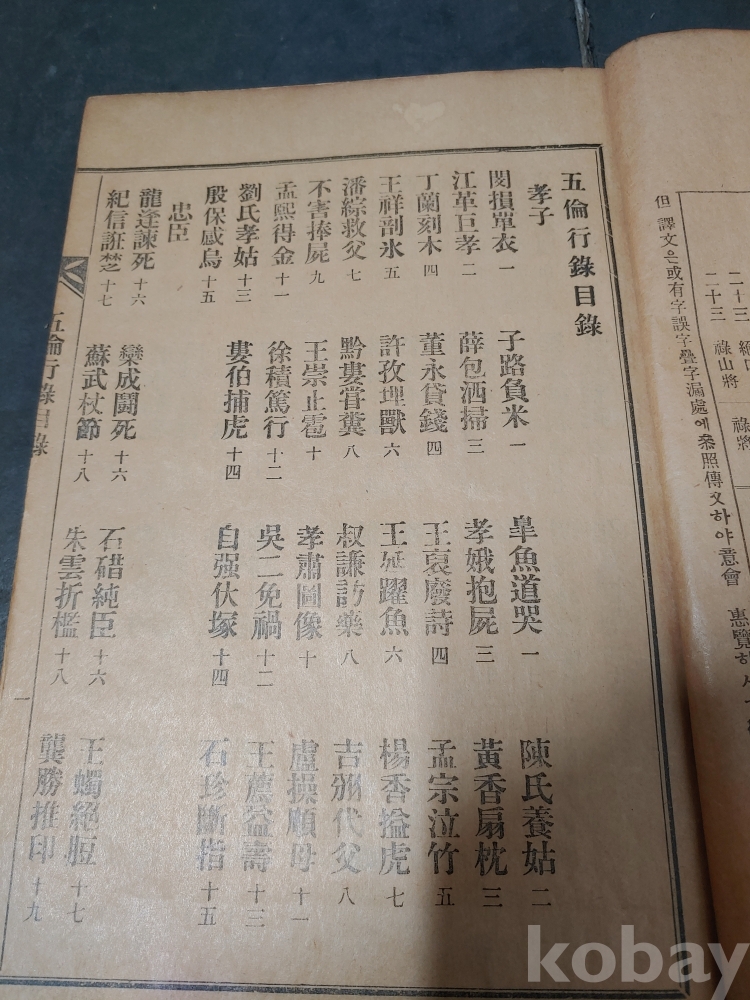 二十三 祿山將 祿將
但 譯文은或有字誤字疊字漏處에參照傳文하야意會 惠覽하
五倫行錄目錄
孝子
閔損單衣 一 子路負米 一 皐魚道哭 一 陳氏養姑 二
江革巨孝 二 薛包洒掃 三 孝娥抱屍 三 黃香扇枕 三
丁蘭刻木 四 董永貸錢 四 王裒廢詩 四 孟宗泣竹 五
王祥剖氷 五 許孜埋獸 六 王延躍魚 六 楊香搤虎 七
潘綜救父 七 黔婁嘗糞 八 叔謙訪藥 八 吉翂代父 八
不害捧屍 九 王崇止雹 十 孝肅圖像 十 盧操順母 十一
孟熙得金 十一 徐積篤行 十二 吳二免禍 十二 王薦益壽 十三
劉氏孝姑 十三 婁伯捕虎 十四 自强伏塚 十四 石珍斷指 十五
殷保感烏 十五
忠臣
龍逄諫死 十六 欒成鬪死 十六 石碏純臣 十六 王蠋絕脰 十七
紀信誑楚 十七 蘇武杖節 十八 朱雲折檻 十八 龔勝推印 十九
五倫行錄目錄 一
kobay